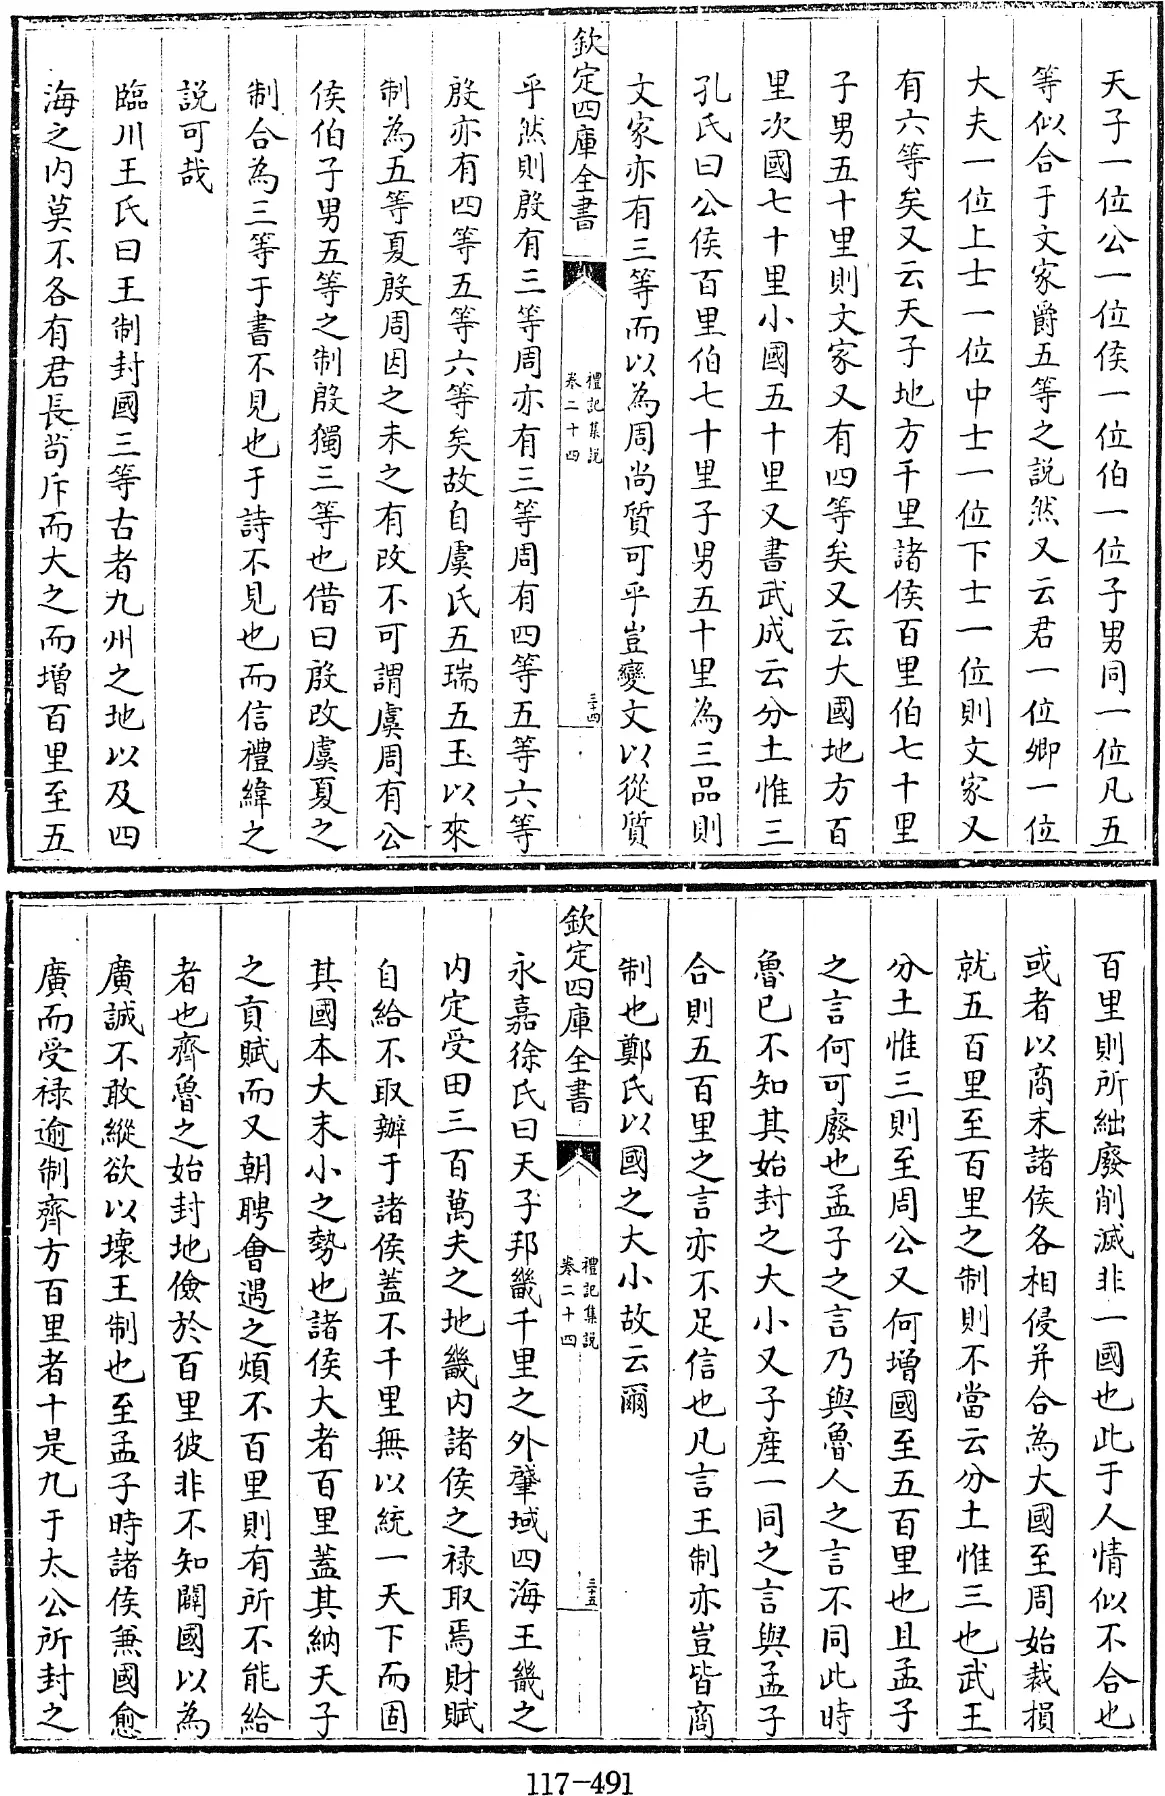 天子一位公一位侯一位伯一位子男同一位凡五
等似合于文家爵五等之説然又云君一位卿一位
大夫一位上士一位中士一位下士一位則文家又
有六等矣又云天子地方千里諸侯百里伯七十里
子男五十里則文家又有四等矣又云大國地方百
里次國七十里小國五十里又書武成云分土惟三
孔氏曰公侯百里伯七十里子男五十里為三品則
文家亦有三等而以為周尚質可乎豈變文以從質
欽定四庫全書
禮記集説
卷二十四
三十四
乎然則殷有三等周亦有三等周有四等五等六等
殷亦有四等五等六等矣故自虞氏五瑞五玉以來
制為五等夏殷周因之未之有改不可謂虞周有公
侯伯子男五等之制殷獨三等也借曰殷改虞夏之
制合為三等于書不見也于詩不見也而信禮緯之
説可哉
臨川王氏曰王制封國三等古者九州之地以及四
海之内莫不各有君長茍斥而大之而增百里至五
百里則所絀廢削滅非一國也此于人情似不合也
或者以商末諸侯各相侵并合為大國至周始裁損
就五百里至百里之制則不當云分土惟三也武王
分土惟三則至周公又何增國至五百里也且孟子
之言何可廢也孟子之言乃與魯人之言不同此時
魯已不知其始封之大小又子產一同之言與孟子
合則五百里之言亦不足信也凡言王制亦豈皆商
制也鄭氏以國之大小故云爾
欽定四庫全書
禮記集説
卷二十四
三十五
永嘉徐氏曰天子邦畿千里之外肇域四海王畿之
内定受田三百萬夫之地畿内諸侯之禄取焉財賦
自給不取辦于諸侯蓋不千里無以統一天下而固
其國本大末小之勢也諸侯大者百里蓋其納天子
之貢賦而又朝聘會遇之煩不百里則有所不能給
者也齊魯之始封地儉於百里彼非不知闢國以為
廣誠不敢縱欲以壞王制也至孟子時諸侯兼國愈
廣而受禄逾制齊方百里者十是九于太公所封之
117-491